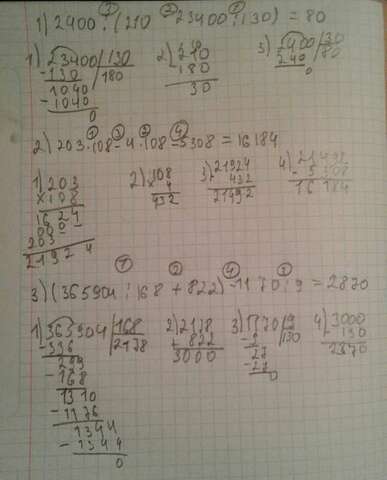 1) 2400 : (210 - 23400 : 130) = 80
1) 23400 | 130
- 130 | 180
1040
- 1040
0
2) 210
- 180
30
3) 2400 | 30
- 240 | 80
0
2) 203 · 108 - 4 · 108 - 5308 = 16184
1) 203
× 108
1624
000
203
21924
2) 108
× 4
432
3) 21924
- 432
21492
4) 21492
- 5308
16184
3) (365904 : 168 + 822) - 1170 : 9 = 2870
1) 365904 | 168
- 336 | 2178
299
- 168
1310
- 1176
1344
- 1344
0
2) 2178
+ 822
3000
3) 1170 | 9
- 9 | 130
27
- 27
0
4) 3000
- 130
2870